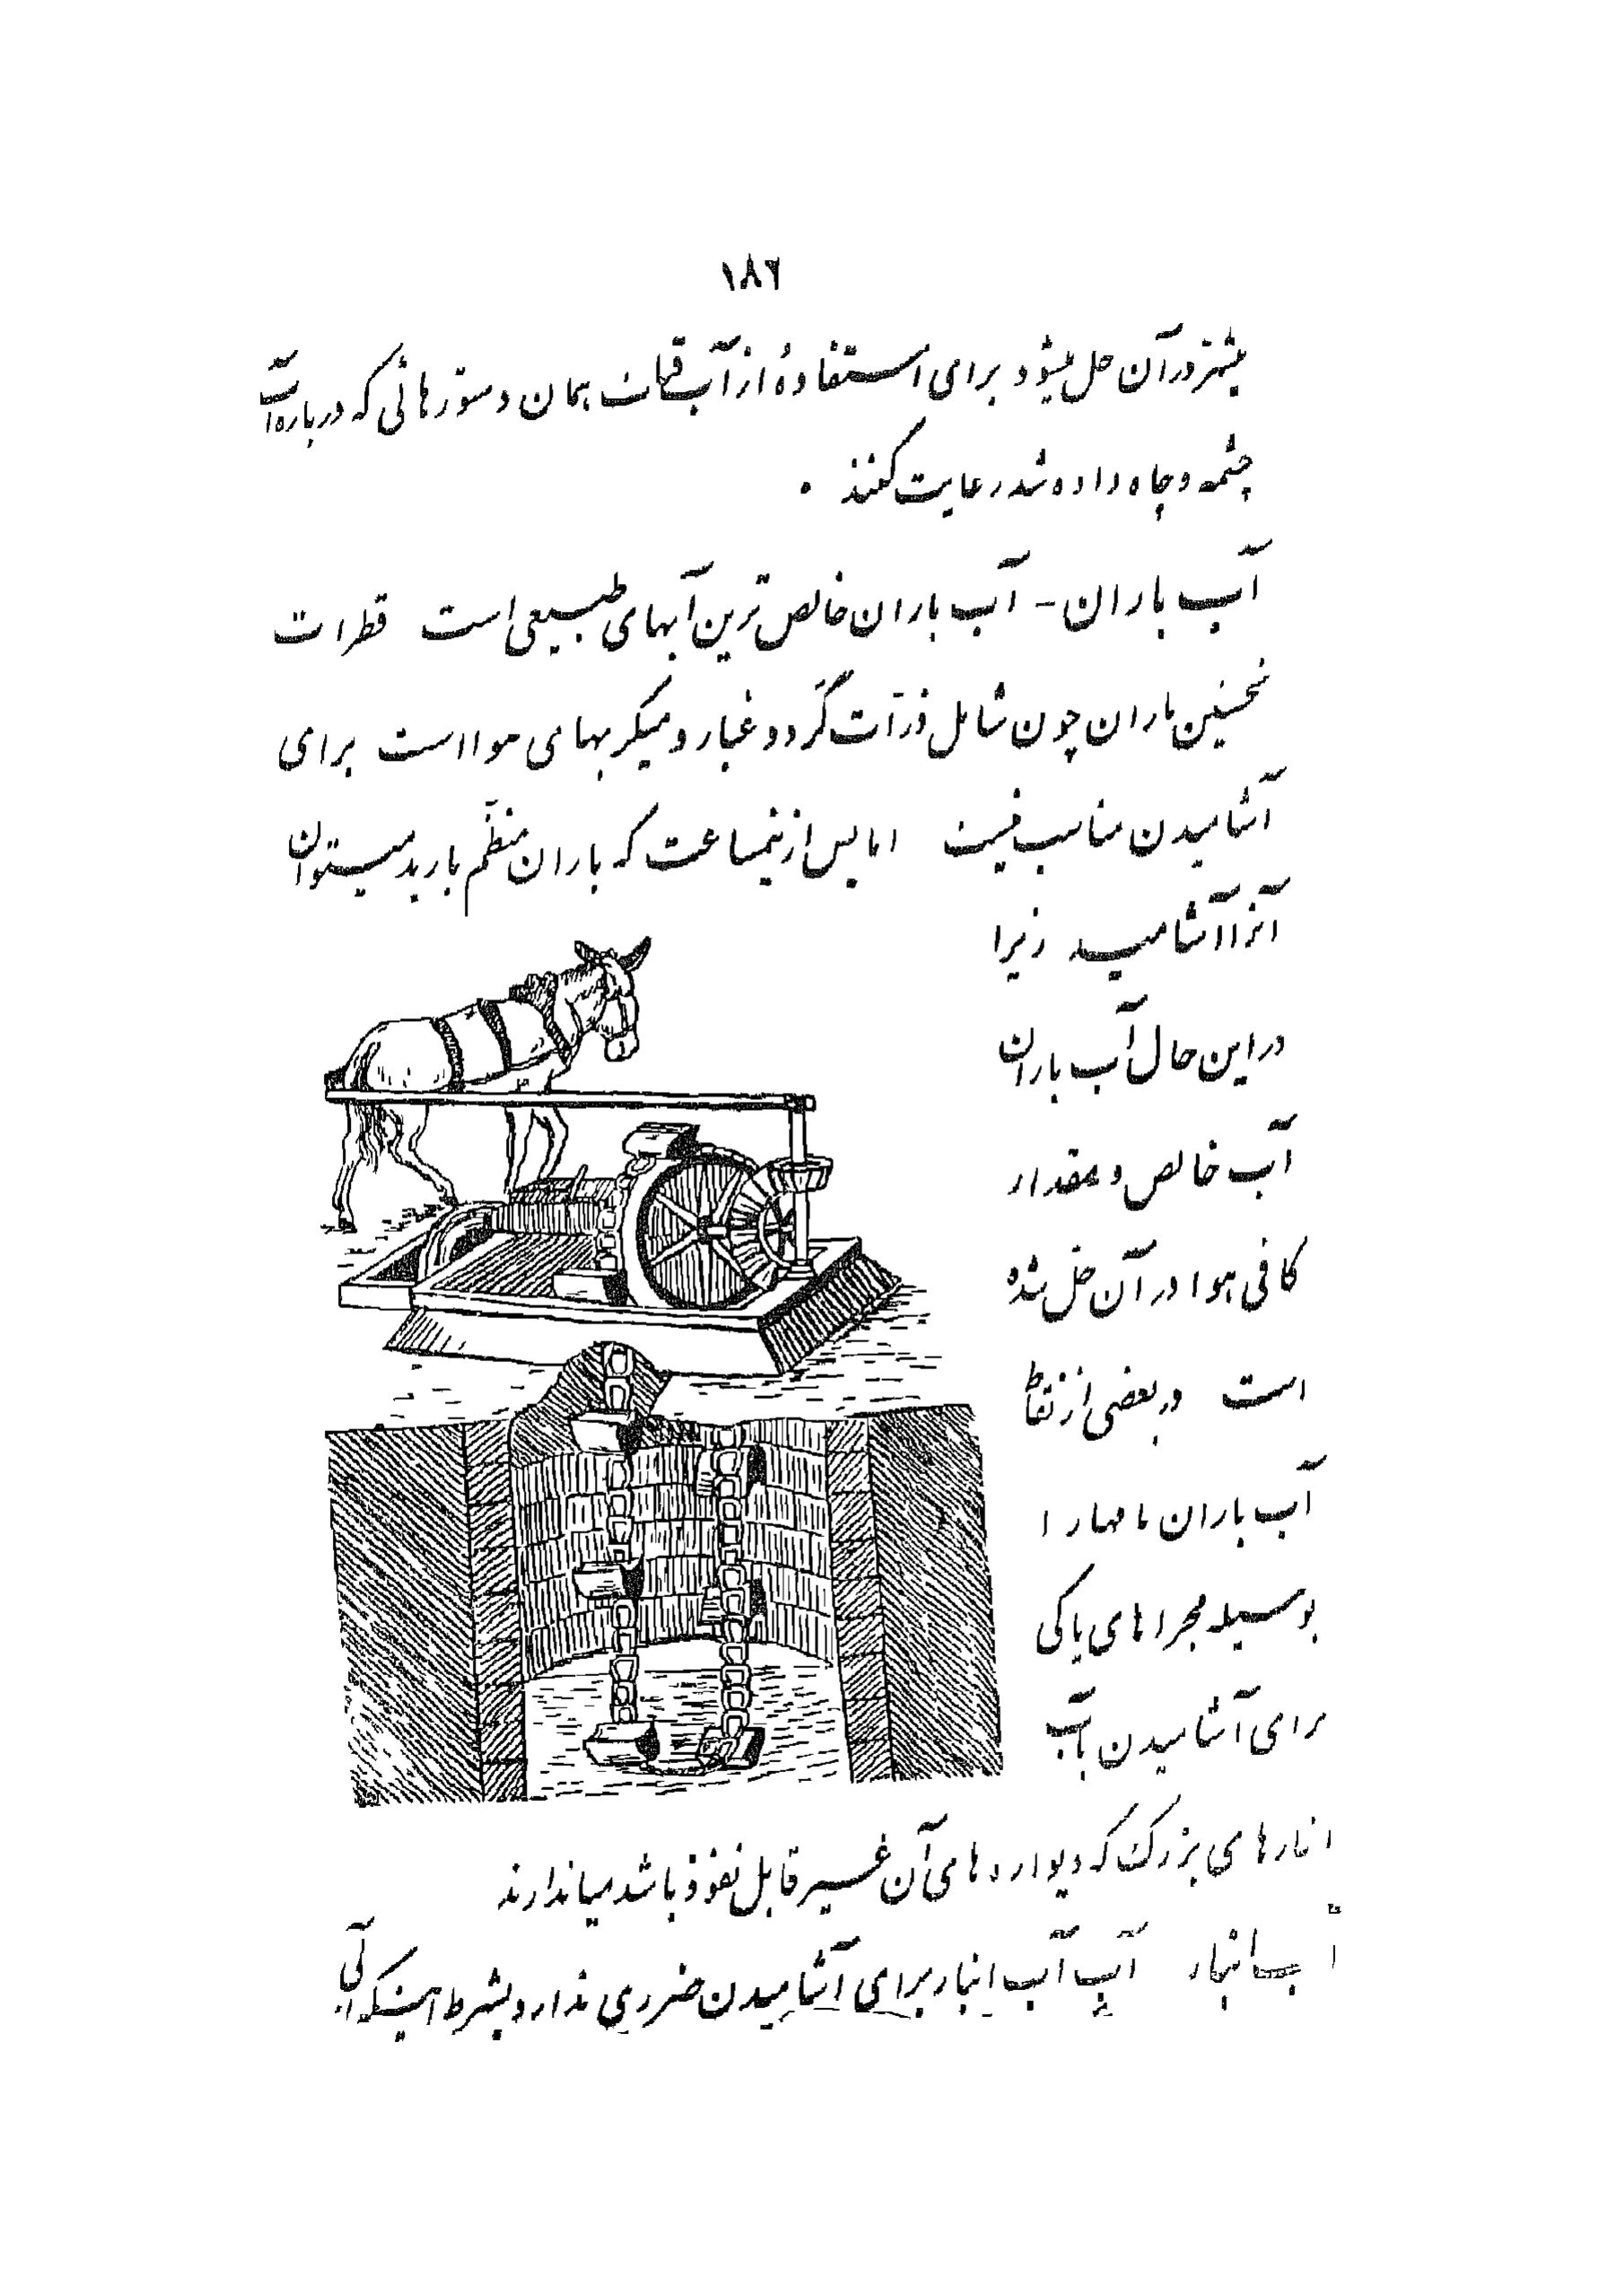 ۱۸۶
بیشتر در آن حل میشود برای استفادهٔ از آب قنات همان دستورهائی که درباره آب
چشمه و چاه داده شد رعایت کنند .
آب باران - آب باران خالص ترین آبهای طبیعی است قطرات
نخستین باران چون شامل ذرّات گرد و غبار و میکربهای هوا است برای
آشامیدن مناسب نیست اما پس از نیمساعت که باران منظّم بارید میتوان
آنرا آشامید زیرا
در این حال آب باران
آب خالص و بمقدار
کافی هوا در آن حل شده
است در بعضی از نقاط
آب باران بامها را
بوسیله مجراهای پاکی
برای آشامیدن بآب
انبارهای بزرگ که دیواره های آن غیر قابل نفوذ باشد میاندازند
آب انبار آب آب انبار برای آشامیدن ضرری ندارد بشرط اینکه آبی